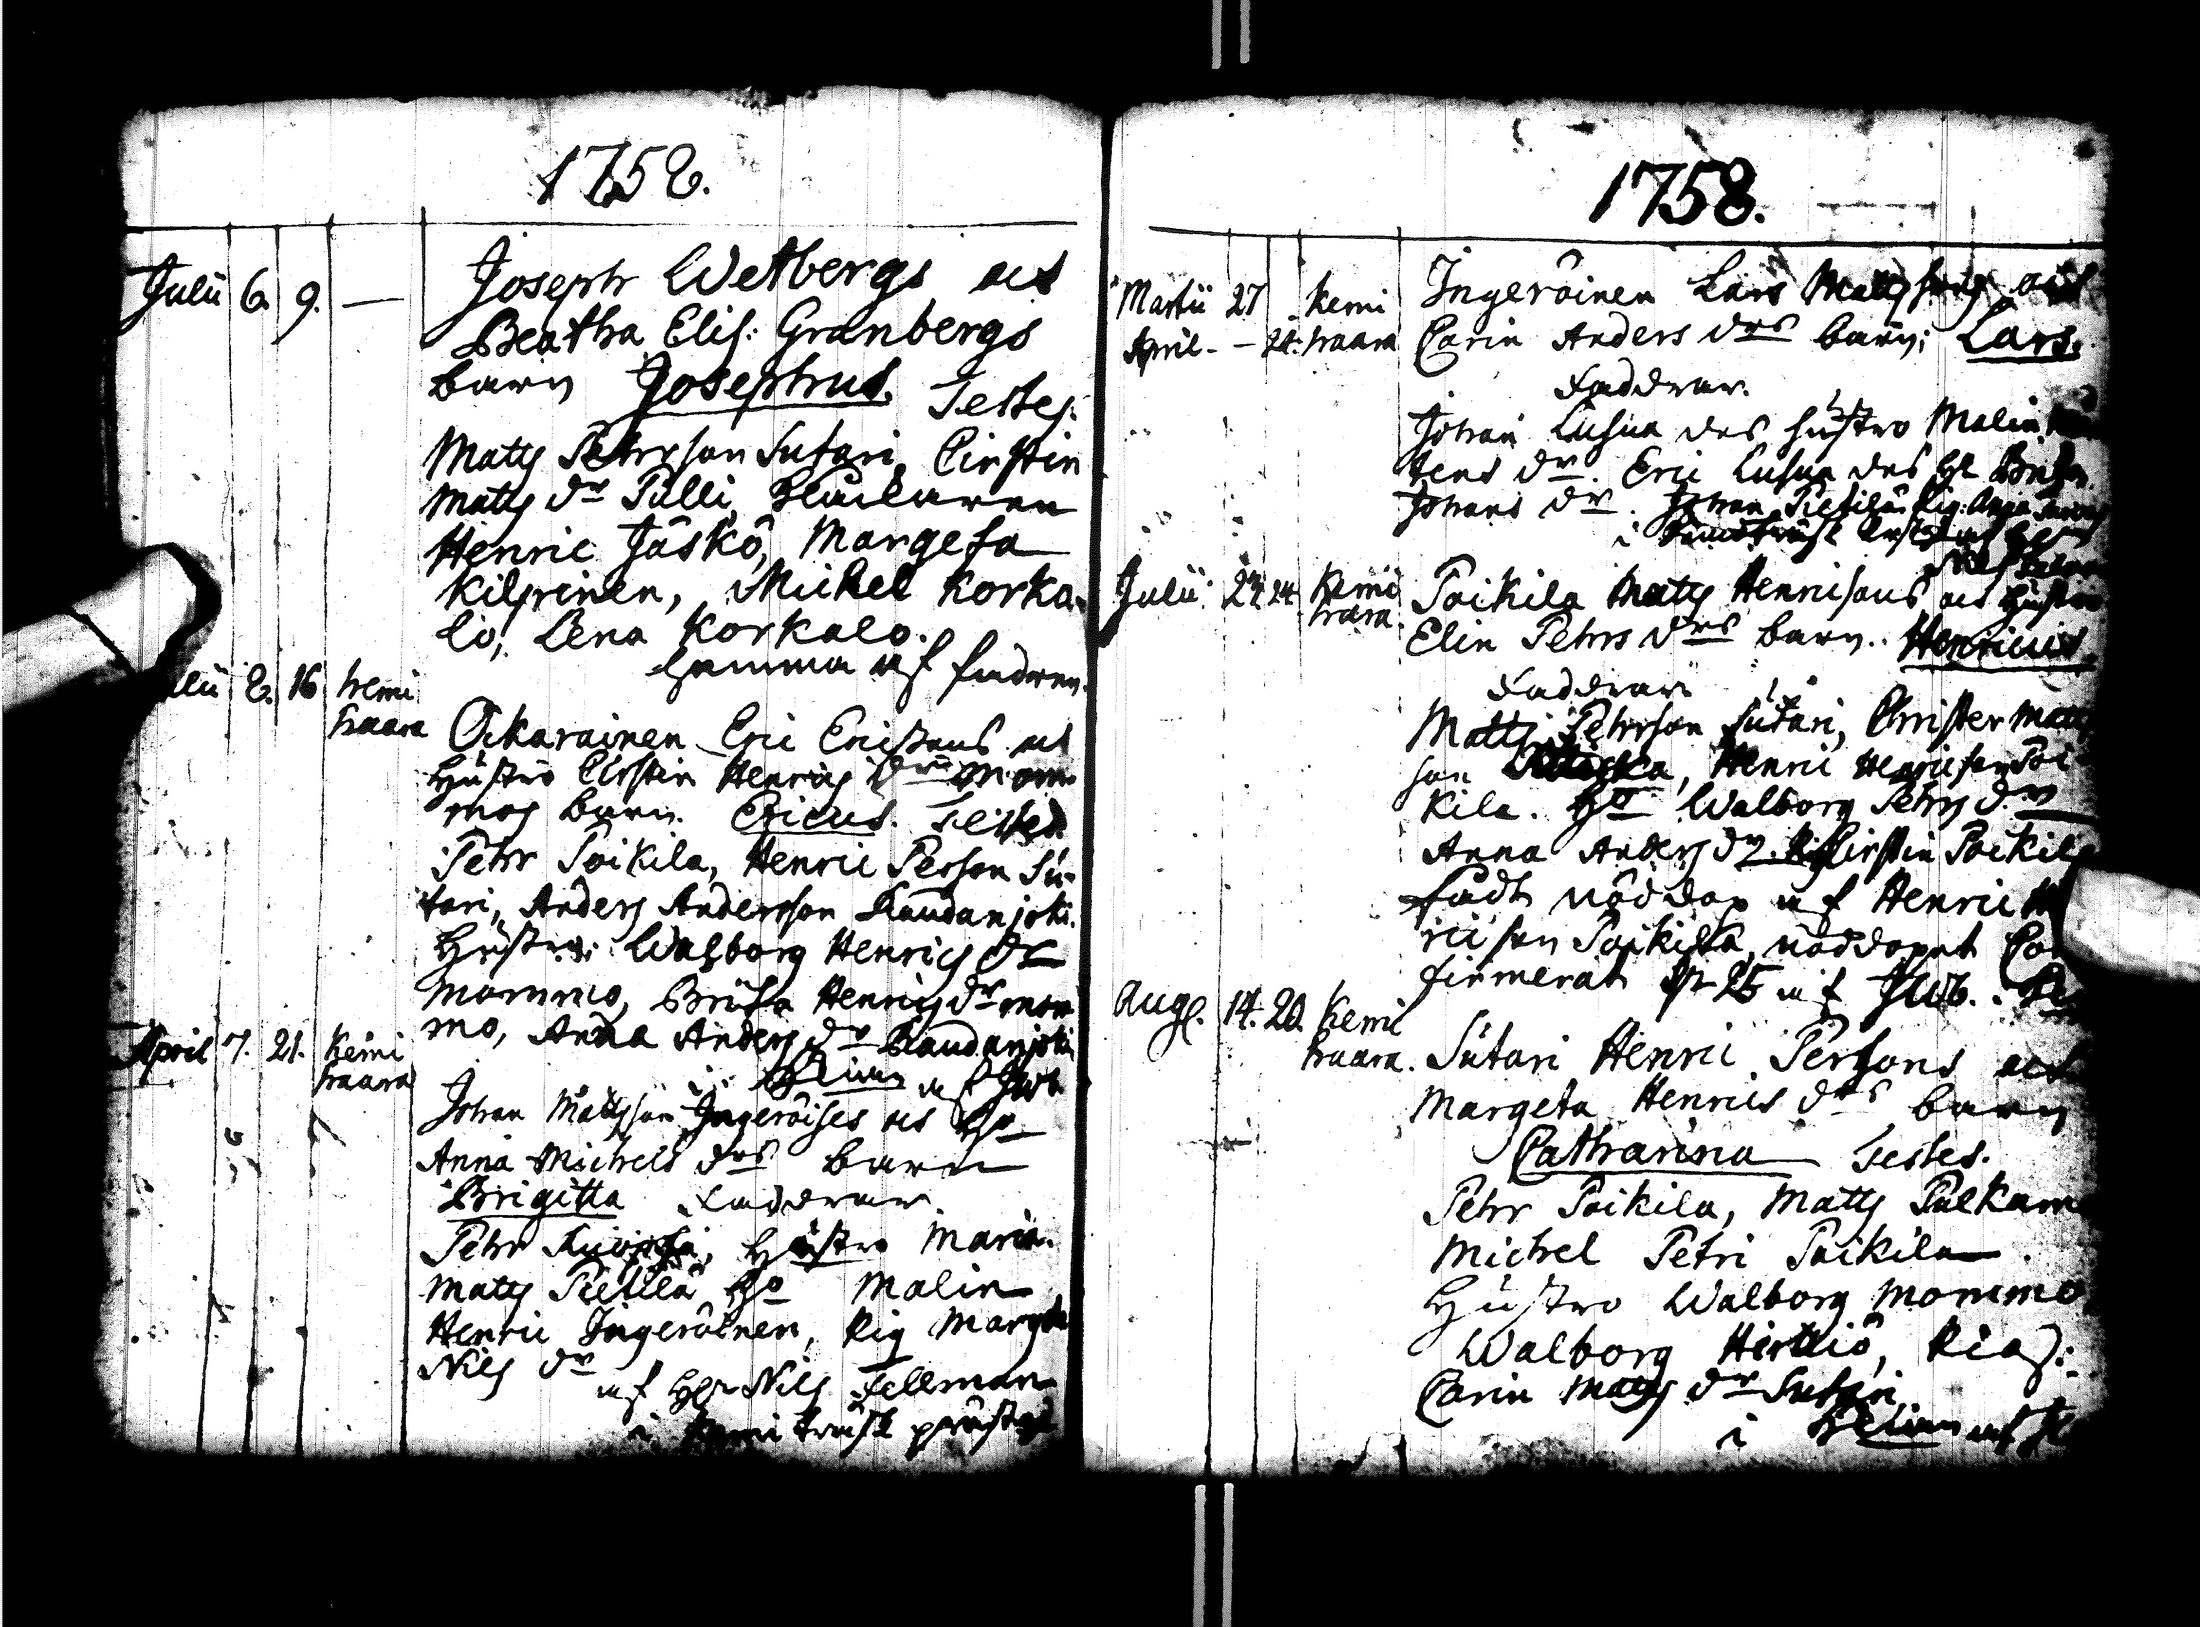 1758.
Julii 6. 9. — Joseph Wetbergs och
Beatha Elis: Granbergs
barn Josephus. Testes:
Matts Pehrsson Sutari, Cirstin
Matts dr Pulli, Klåckaren
Henric Jäskö, Margeta
Kilpinen, Michel Korka-
lo, Lena Korkalo.
hemma af fadren.
8. 16 Kemi
haara Ockarainen Eric Ericsons och
Hustro Cirstin Henrics drs Mom-
mos barn. Ericus. Testes
Pehr Poikila, Henric Person Su-
tari, Anders Andersson Raudanjoki.
Hustro: Walborg Henrics dr
Mommo, Britha Henrics dr Mom-
mo, Anna Anders dr Raudanjoki
i af JWb.
April 7. 21. Kemi
haara Johan Mattsson Ingeröises och Ho
Anna Michels drs barn
Brigitta Faddrar.
Pehr Hustro Maria.
Matts Pietilä Ho Malin
Henric Ingeröinen, Pig Margeta
Nils dr
af Hr Nils Fellman
i Kemi träsk prästgd
1758.
Martii 27 Kemi
April. — 24. haara Ingeröinen Lars Mattssons och
Carin Anders drs barn: Lars.
Faddrar.
Johan Lusua des hustro Malin
tens dr. Eric Lusua des H. Britha
Johans dr. Johan Pietilä Pig: Anna
i Kemiträsk
Julii 24 24 Kemi
haara. Poikila Matts Henrissons och hustro
Elin Pehrs drs barn. Henricus.
Faddrar
Matts Pehrson Sutari, Christer Matts
son Henric Henricson Poi-
kila. Ho Walborg Pehrs dr
Anna Anders dr. Pig Cirstin Poikila
fådt nöddop af Henric
ricson Poikila, nöddopet Con
firmerat d 25 af JWb.
Aug. 14. 20. Kemi
haara. Sutari Henric Persons och
Margeta Henrics drs barn
Catharina Testes.
Pehr Poikila, Matts Pulkam
Michel Petri Poikila
Hustro Walborg Mommo
Walborg Hirttiö, Piga:
Carin Matts dr Sutari
i af